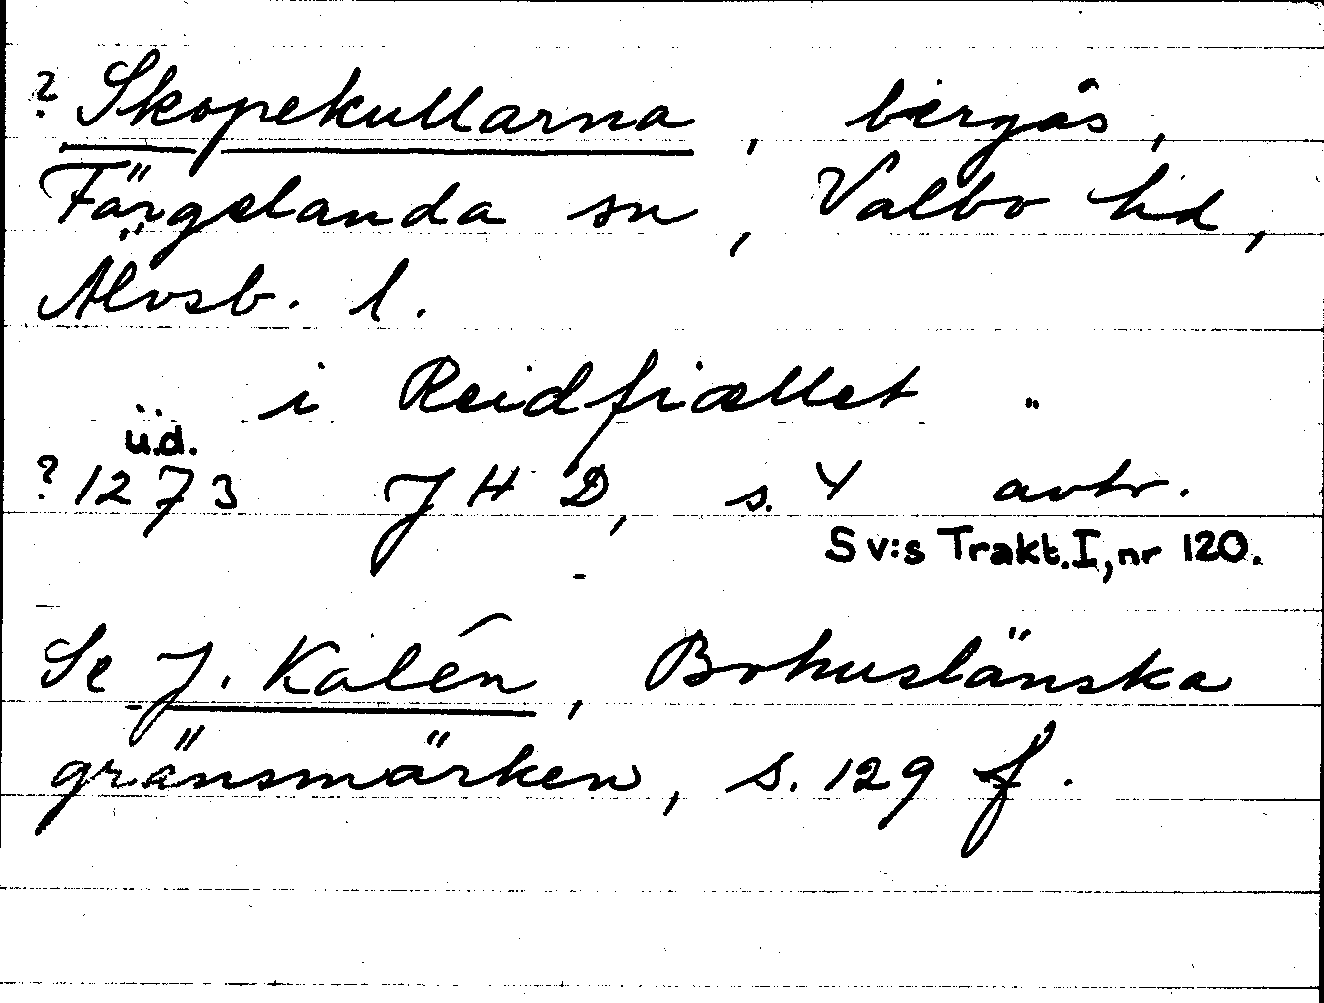 ? Skopekullarna, bergås,
Färgelanda sn, Valbo hd,
Älvsb. l.
i Reidfiællet
u.d.
? 1273 JHD, s. 4 avtr.
Sv:s Trakt. I, nr 120.
Se J. Kalén, Bohuslänska
gränsmärken, s. 129 f.